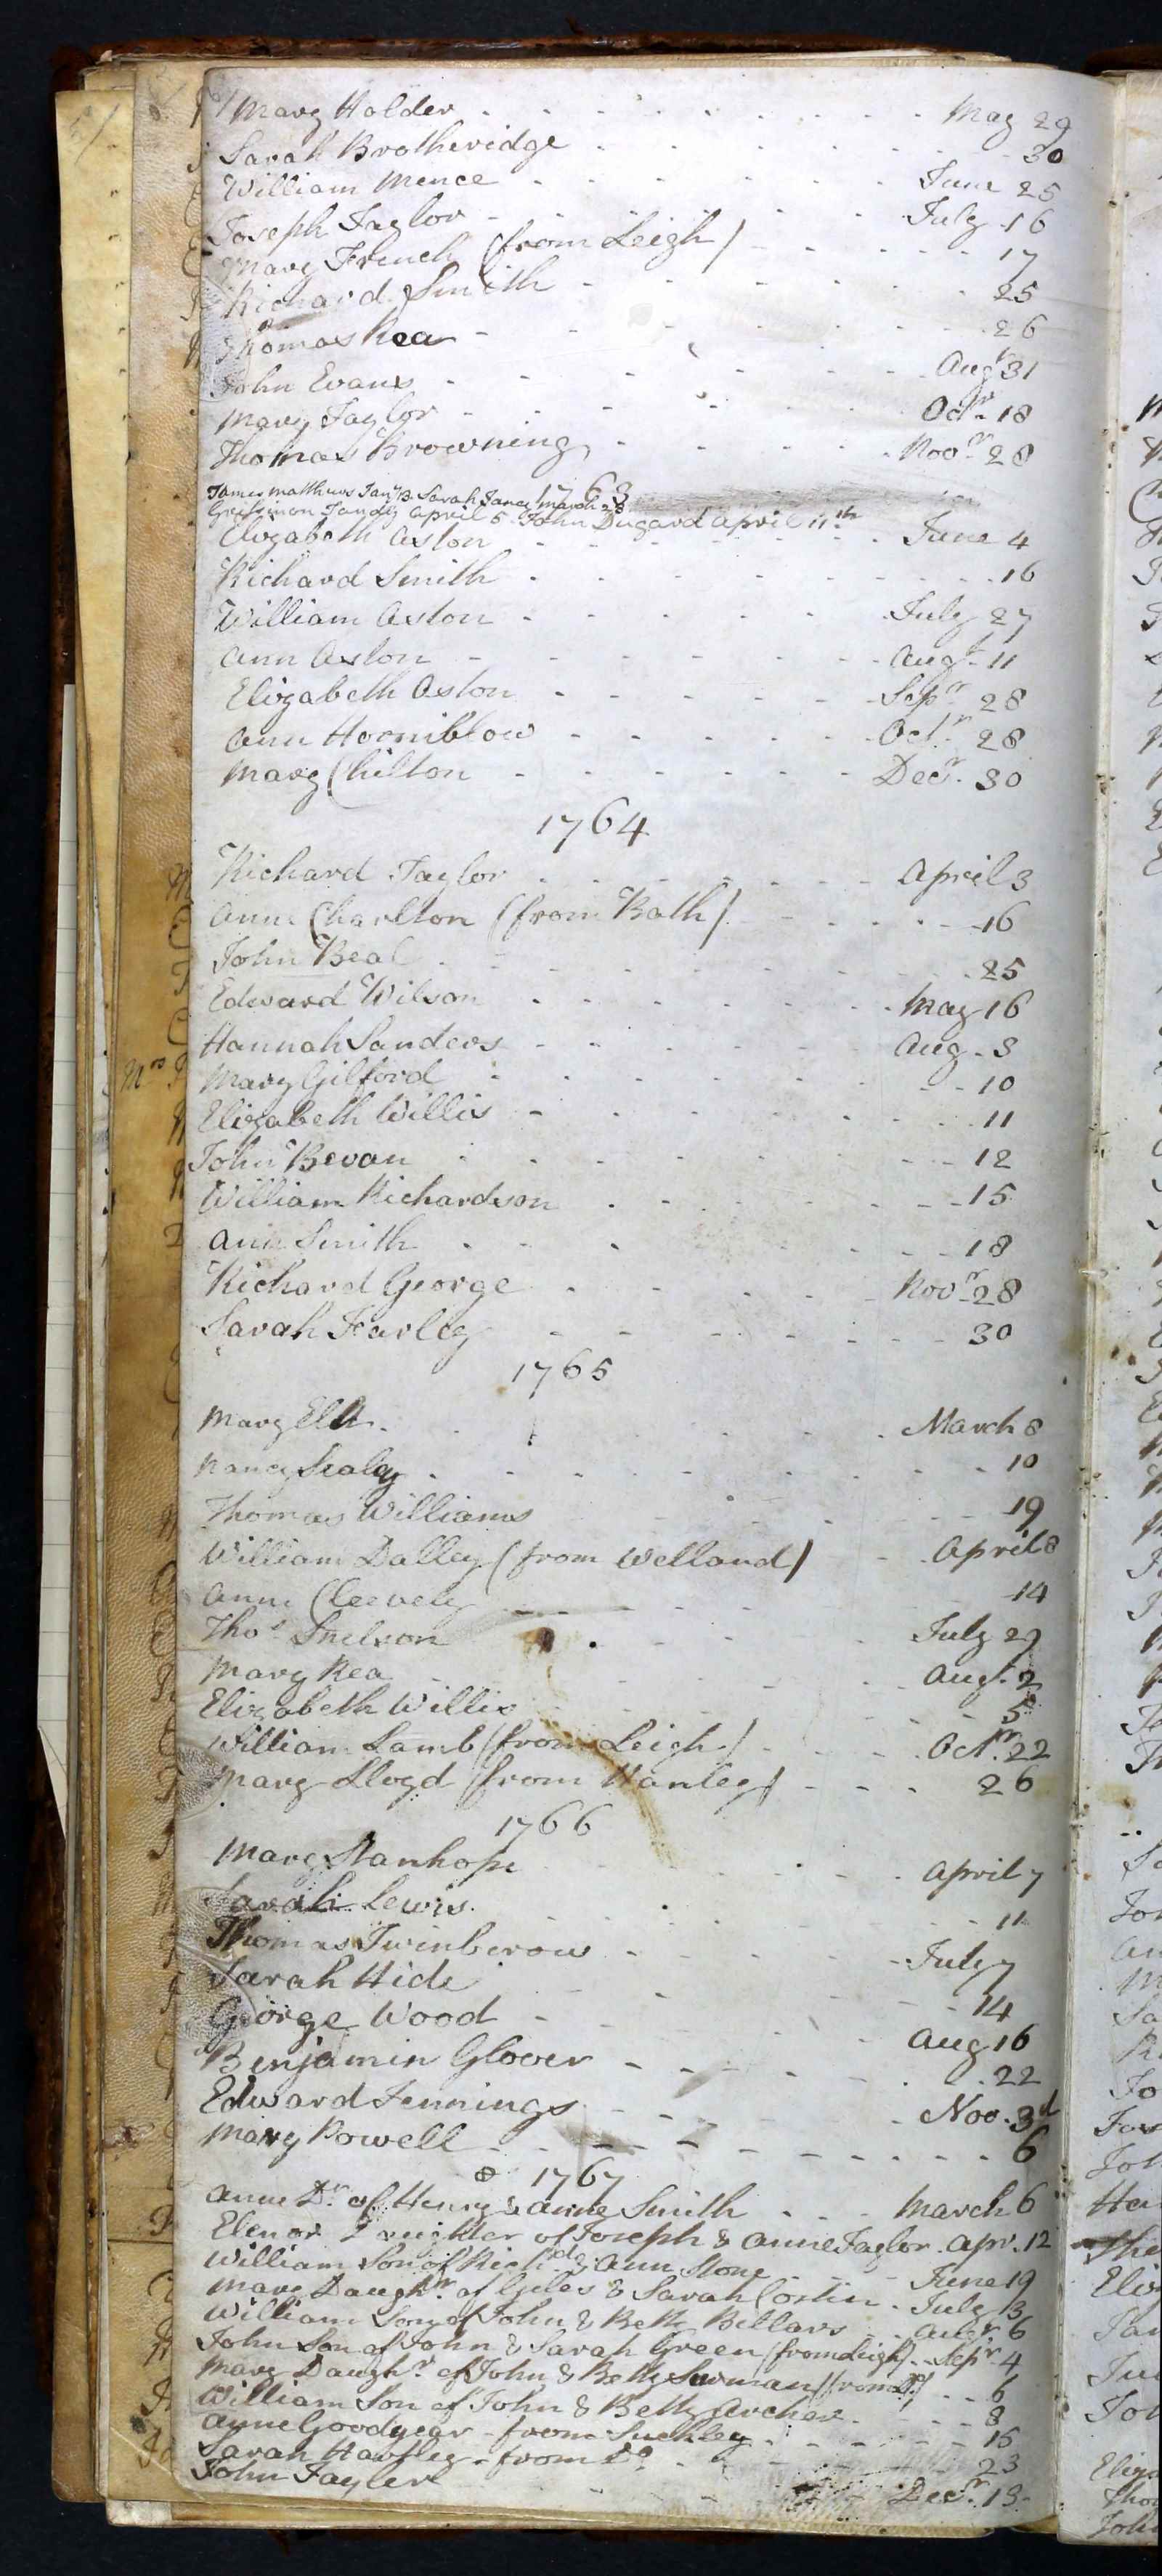 Mary Holder - - - May 29
Sarah Brotheridge - - - 30
William Mence - - - June 25
Joseph Taylor - - - July 16
Mary French (from Leigh) - - - 17
Richard Smith - - - 25
Thomas Rea - - - 26
John Evans - - - Augt 31
Mary Taylor - - - Octr 18
Thomas Browning - - - Novr 28
1763
James Matthews Jany 13 Sarah March 28
Tandy April 5 John Dugard April 11th
Elizabeth Aston - - - June 4
Richard Smith - - - 16
William Aston - - - July 27
Ann Aston - - - Augt 11
Elizabeth Aston - - - Sepr 28
Ann Horniblow - - - Octr 28
Mary Chilton - - - Decr 30
1764
Richard Taylor - - - April 3
Anne Charlton (from Bath) - - - 16
John Beal - - - 25
Edward Wilson - - - May 16
Hannah Sanders - - - Aug 3
Mary Gilford - - - 10
Elizabeth Willis - - - 11
John Bevan - - - 12
William Richardson - - - 15
Ann Smith - - - 18
Richard George - - - Novr 28
Sarah Farley - - - 30
1765
Mary - - - March 8
Nancy Sealy - - - 10
Thomas Williams - - - 19
William Dalley (from Welland) - - - April 8
Anne Cleevely - - - 14
Thos Snelson - - - July 29
Mary Rea - - - Augt 2
Elizabeth Willis - - - 5
William Lamb (from Leigh) - - - Octr 22
Mary Lloyd (from Hanley) - - - 26
1766
Mary Stanhope - - - April 7
Sarah Lewis - - - 11
Thomas Twinberow - - - July 7
Sarah Hide - - - 14
George Wood - - - Aug 16
Benjamin Glover - - - 22
Edward Jennings - - - Nov. 3d
Mary Powell - - - 6
1767
Anne Dr of Henry & Anne Smith - - - March 6
Elenor Daughter of Joseph & Anne Taylor Apr. 12
William Son of Richd & Ann Stone - - - June 19
Mary Daughr of Giles & Sarah Costin - July 3
William Son of John & Betty Billars - - Augt 6
John Son of John & Sarah Green (from Leigh) - Sepr 4
Mary Daughr of John & Betty (from Do) - - 6
William Son of John & Betty Archer - - - 8
Anne Goodyear - from Suckley - - - 15
Sarah Hartley - from Do - - - 23
John Tayler - - - Decr 13